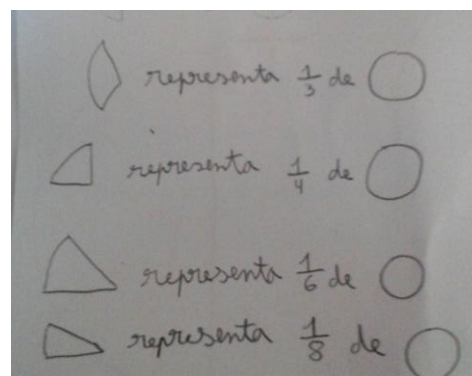 representa 1/3 de
representa 1/4 de
representa 1/6 de
representa 1/8 de